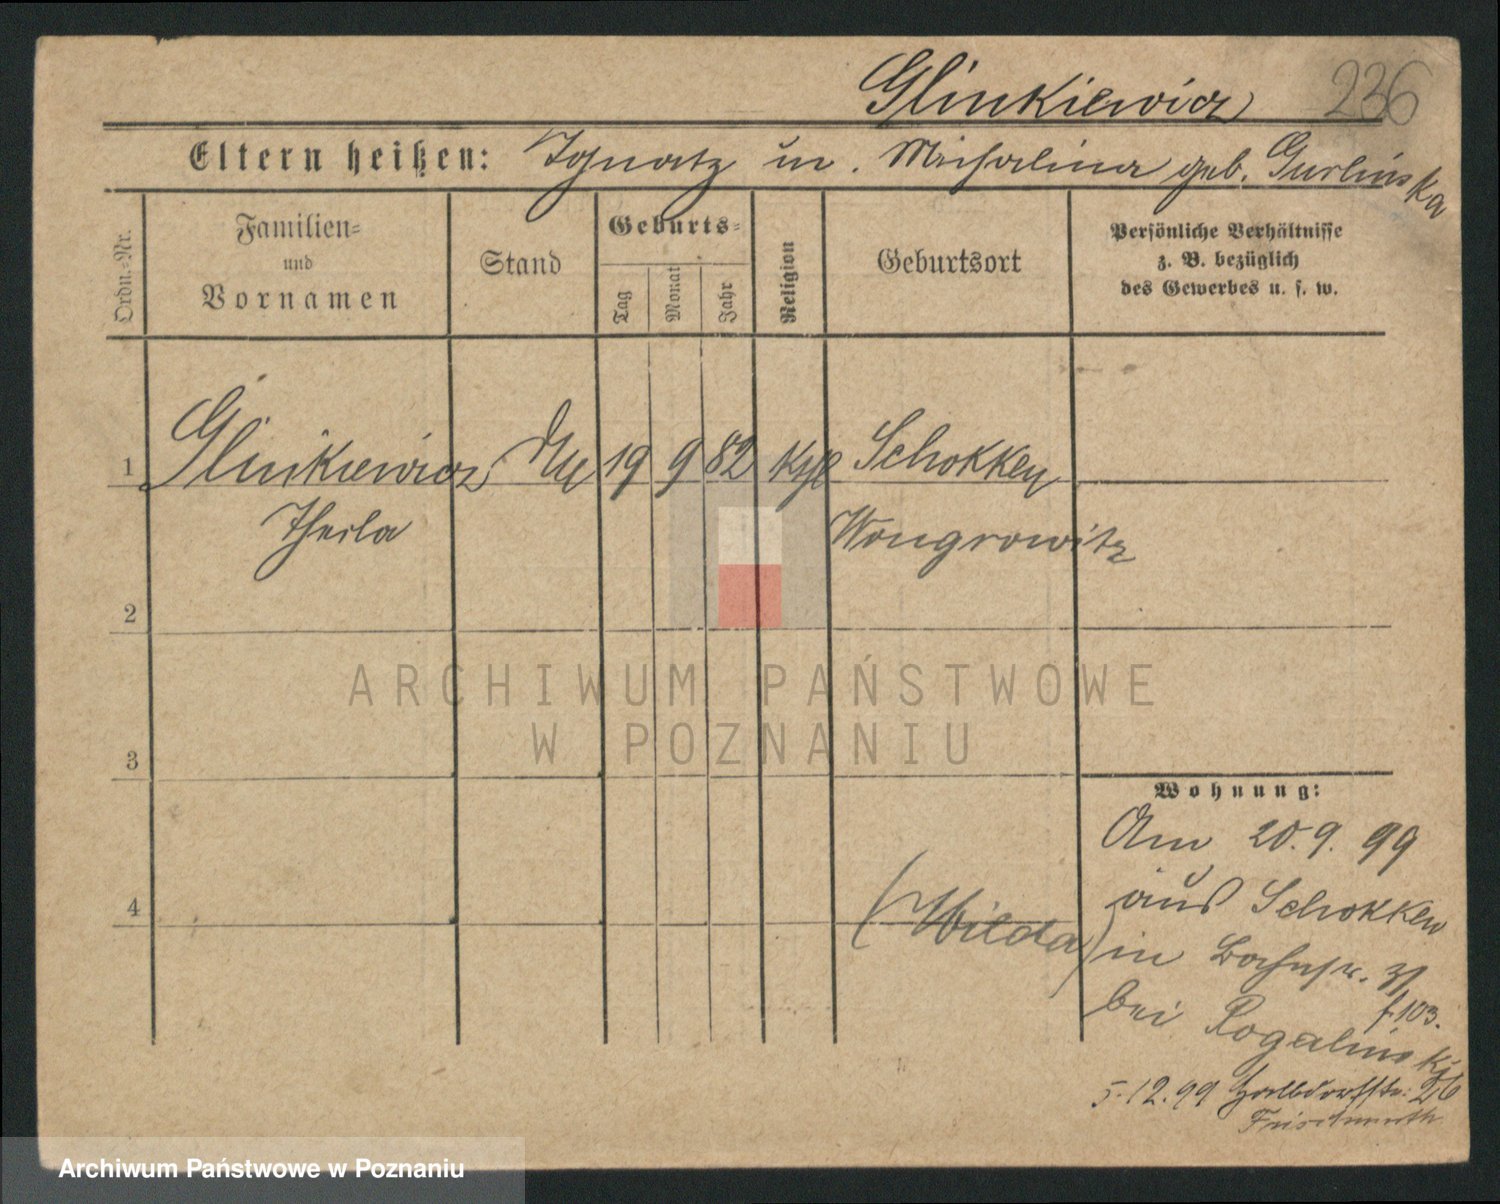 Glinkiewicz 236
Eltern heißen: Ignatz u. Michalina geb. Gurlinska
Ordn.-Nr.
Familien-
und
Vornamen
Stand
Geburts-
Tag
Monat
Jahr
Religion
Geburtsort
Persönliche Verhältnisse
z. B. bezüglich
des Gewerbes u. s. w.
1 Glinkiewicz 19 9 82 Schokken
Wongrowitz
2
ARCHIWUM PAŃSTWOWE
W POZNANIU
3
Wohnung:
Am 20.9.99
4
aus Schokken
(Wilda)
in Bachstr. 31
f. 103.
bei Rogalinski
5.12.99 Halbdorfstr. 26
Archiwum Państwowe w Poznaniu